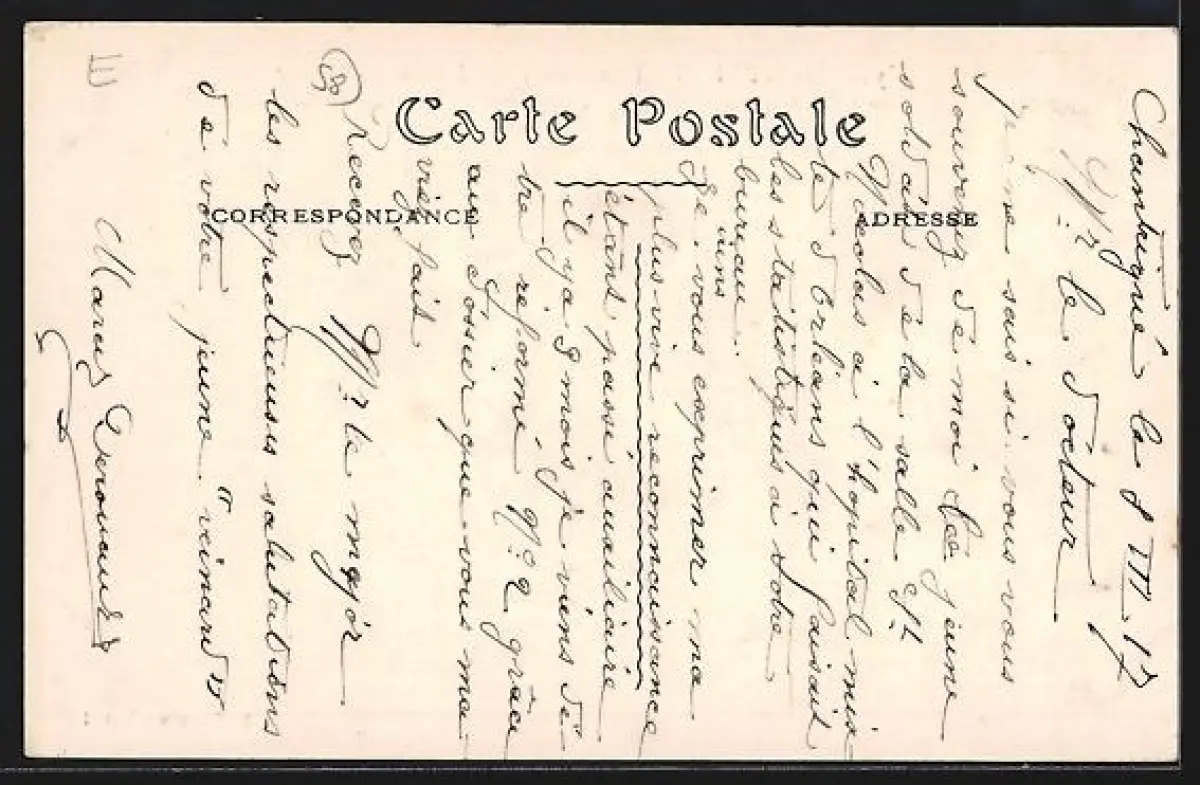 Carte Postale
CORRESPONDANCE
ADRESSE
le 8 III. 17
Mr le docteur
je ne sais si vous vous
souvenez de moi jeune
soldat de la salle St
Nicolas à l'hopital mix-
te d'Orléans qui faisait
les statistiques à votre
bureau.
viens
Je vous exprimer ma
plus vive reconnaissance
étant passé auxiliaire
il y a 9 mois je viens d'ê
tre réformé No 2 grâce
au dossier que vous ma-
viez fait
Recevez Mr le major
les respectueuses salutations
de votre jeune "renard"